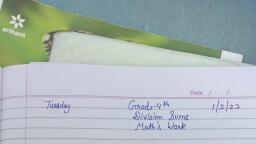 arihant
Date / /
Tuesday Grade-4th 1/2/22
Division Sums
Math's Work